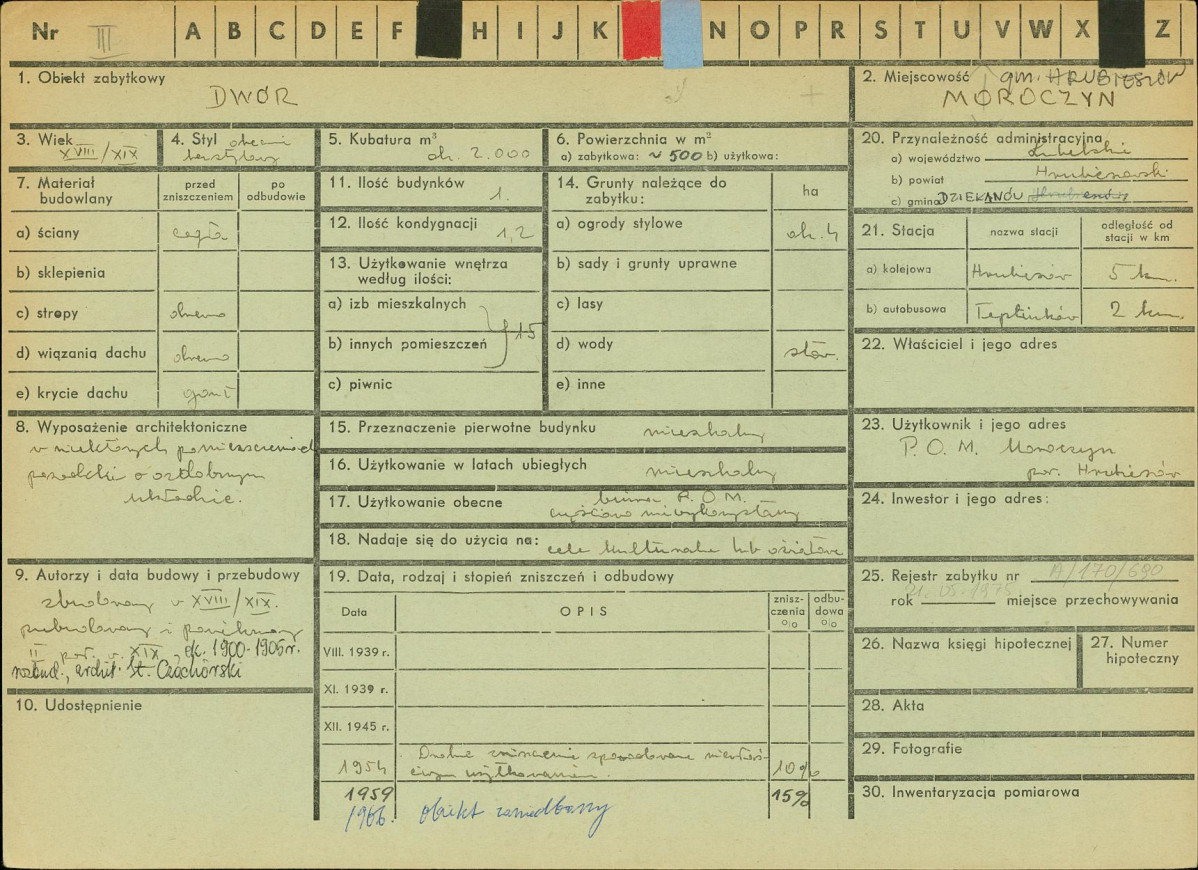 Nr III A B C D E F H I J K N O P R S T U V W X Z
1. Obiekt zabytkowy
DWÓR
2. Miejscowość gm. HRUBIESZÓW
MOROCZYN
3. Wiek
XVIII/XIX
4. Styl obecnie
bezstylowy
5. Kubatura m³
ok. 2.000
6. Powierzchnia w m²
a) zabytkowa: ~ 500 b) użytkowa:
20. Przynależność administracyjna
a) województwo Lubelskie
b) powiat Hrubieszowski
c) gmina DZIEKANÓW
7. Materiał budowlany
przed zniszczeniem
po odbudowie
a) ściany cegła
b) sklepienia
c) stropy drewno
d) wiązania dachu drewno
e) krycie dachu gont
11. Ilość budynków 1.
12. Ilość kondygnacji 1,2
13. Użytkowanie wnętrza
według ilości:
a) izb mieszkalnych
b) innych pomieszczeń
15
c) piwnic
14. Grunty należące do
zabytku:
ha
a) ogrody stylowe ok. 4
b) sady i grunty uprawne
c) lasy
d) wody staw.
e) inne
21. Stacja
nazwa stacji
odległość od
stacji w km
a) kolejowa Hrubieszów 5 km.
b) autobusowa Teptiuków 2 km.
22. Właściciel i jego adres
8. Wyposażenie architektoniczne
w niektórych pomieszczeniach
posadzki o ozdobnym
układzie.
15. Przeznaczenie pierwotne budynku mieszkalny
16. Użytkowanie w latach ubiegłych mieszkalny
17. Użytkowanie obecne biura P.O.M.
częściowo niewykorzystany
18. Nadaje się do użycia na: cele kulturalne lub oświatowe
23. Użytkownik i jego adres
P.O.M. Moroczyn
pow. Hrubieszów
24. Inwestor i jego adres:
9. Autorzy i data budowy i przebudowy
zbudowany w XVIII/XIX.
przebudowany i powiększony
II poł. w. XIX, ok. 1900-1905 r.
rozbud., archit. St. Czachórski
10. Udostępnienie
19. Data, rodzaj i stopień zniszczeń i odbudowy
Data
OPIS
znisz-
czenia
%
odbu-
dowa
%
VIII. 1939 r.
XI. 1939 r.
XII. 1945 r.
1954 Drobne zniszczenia spowodowane niewłaś-
ciwym użytkowaniem. 10%
1959 15%
1966. obiekt zaniedbany
25. Rejestr zabytku nr A/170/690
rok 21.05.1975 miejsce przechowywania
26. Nazwa księgi hipotecznej
27. Numer
hipoteczny
28. Akta
29. Fotografie
30. Inwentaryzacja pomiarowa